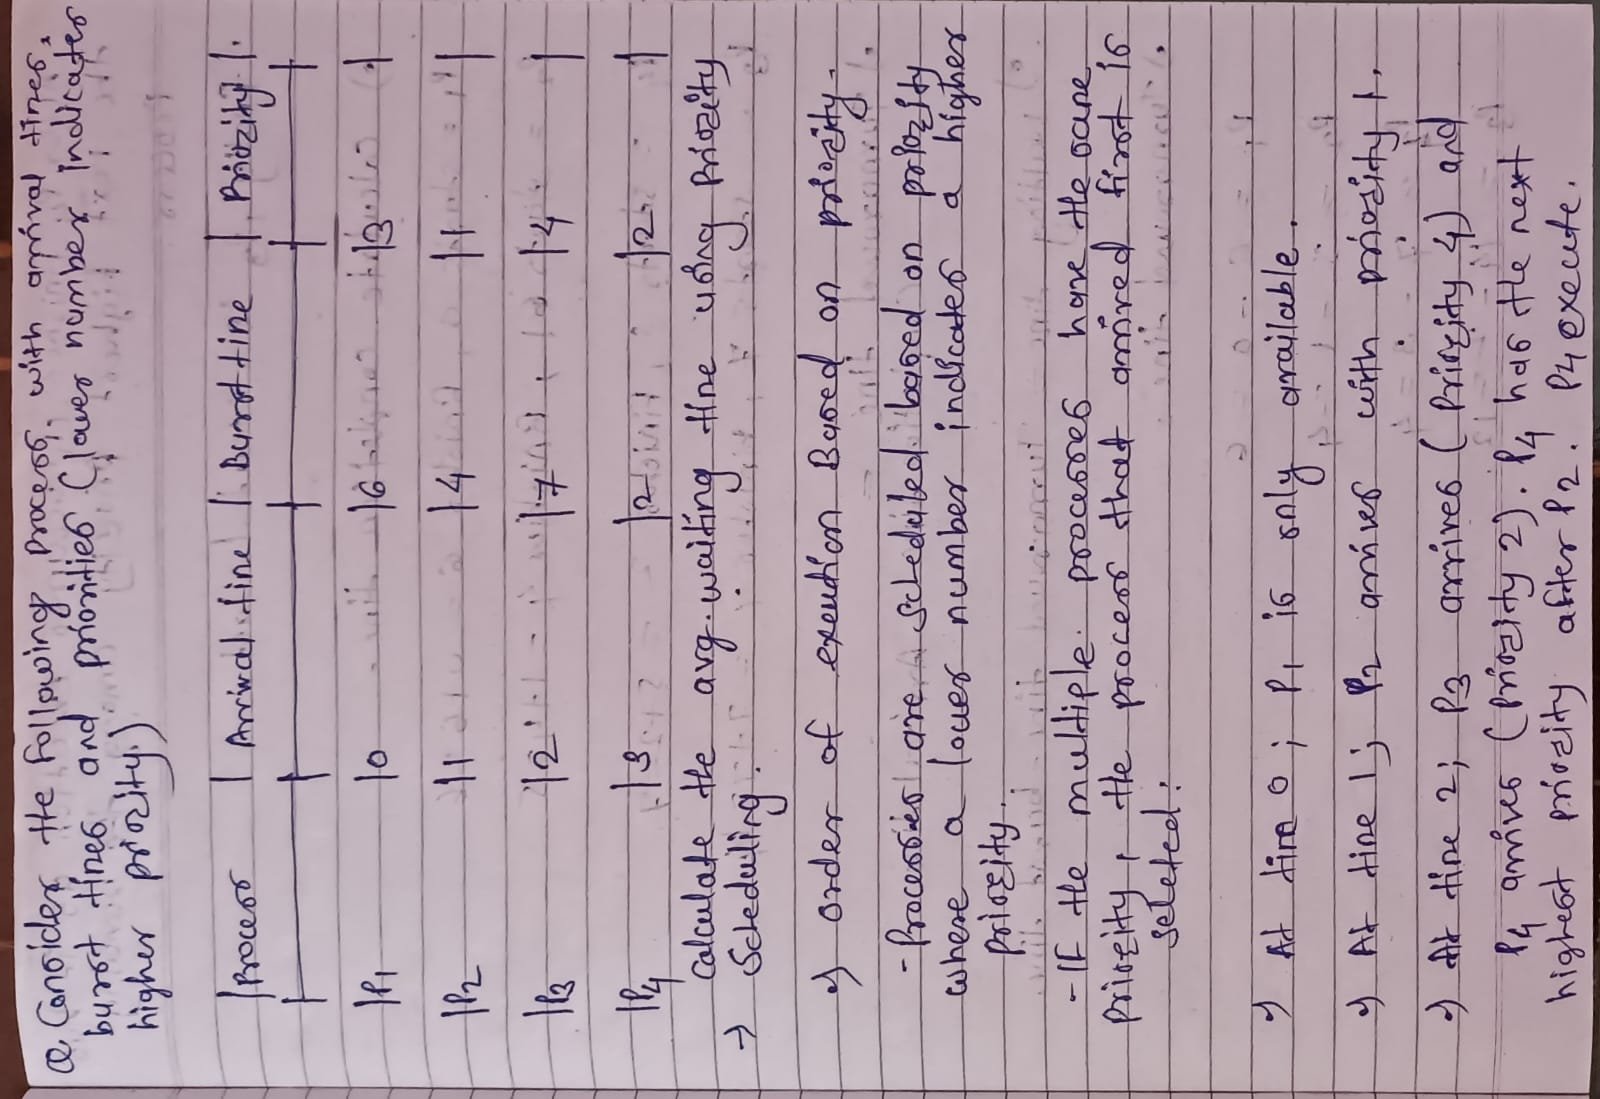 Q Consider the following process, with arrival times,
burst times and priorities (lower number indicates
higher priority.)
| Process | Arrival time | Burst time | Priority |
| P1 | 0 | 6 | 3 |
| P2 | 1 | 4 | 1 |
| P3 | 2 | 7 | 4 |
| P4 | 3 | 2 | 2 |
Calculate the avg. waiting time using Priority
→ Scheduling.
→) order of execution Based on priority.
- Processes are scheduled based on priority
where a lower number indicates a higher
priority.
- If the multiple processes have the same
priority, the process that arrived first is
selected:
→) At time 0; P1 is only available.
→) At time 1; P2 arrives with priority 1.
→) At time 2; P3 arrives (Priority 4) and
P4 arrives (priority 2). P4 has the next
highest priority after P2. P4 execute.